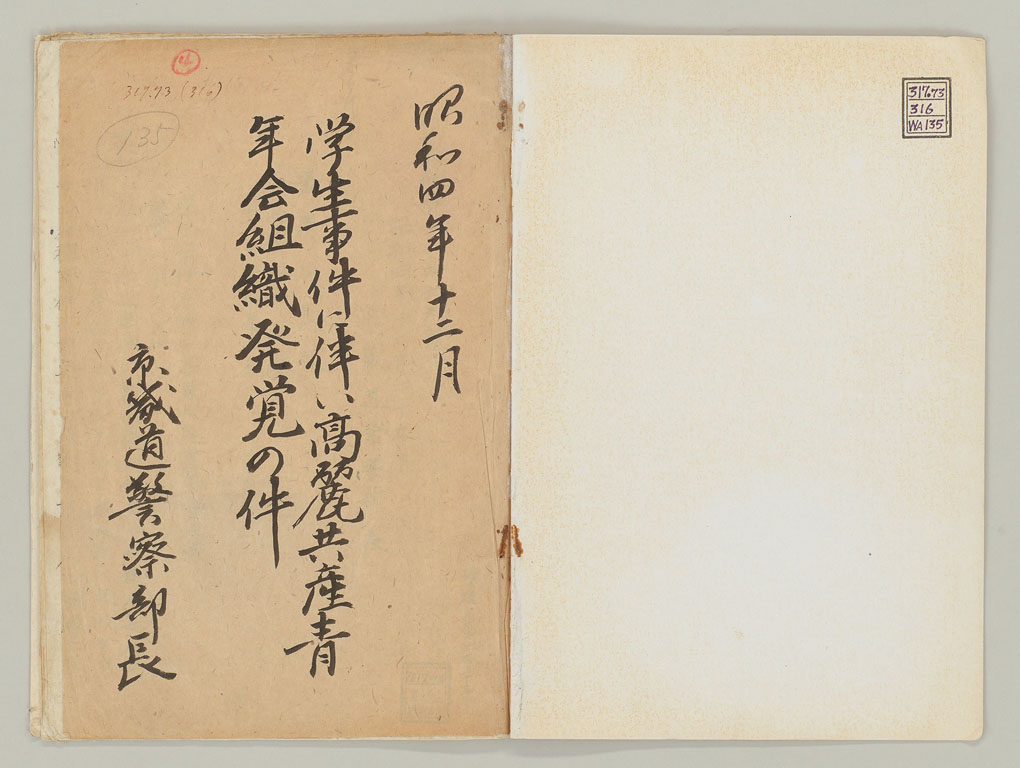 317.73
316
WA135
昭和四年十二月
学生事件に伴い高麗共産青
年会組織発覚の件
京城道警察部長
317.73 (316)
135